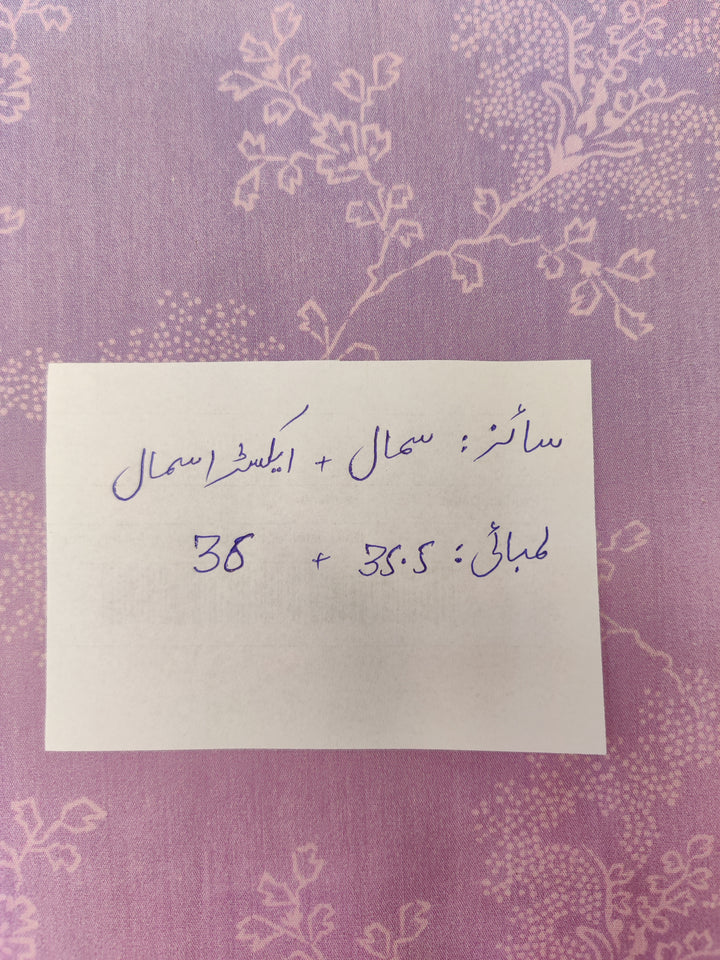 سائز: سمال + ایکسٹرا سمال
لمبائی: 35.5 + 36